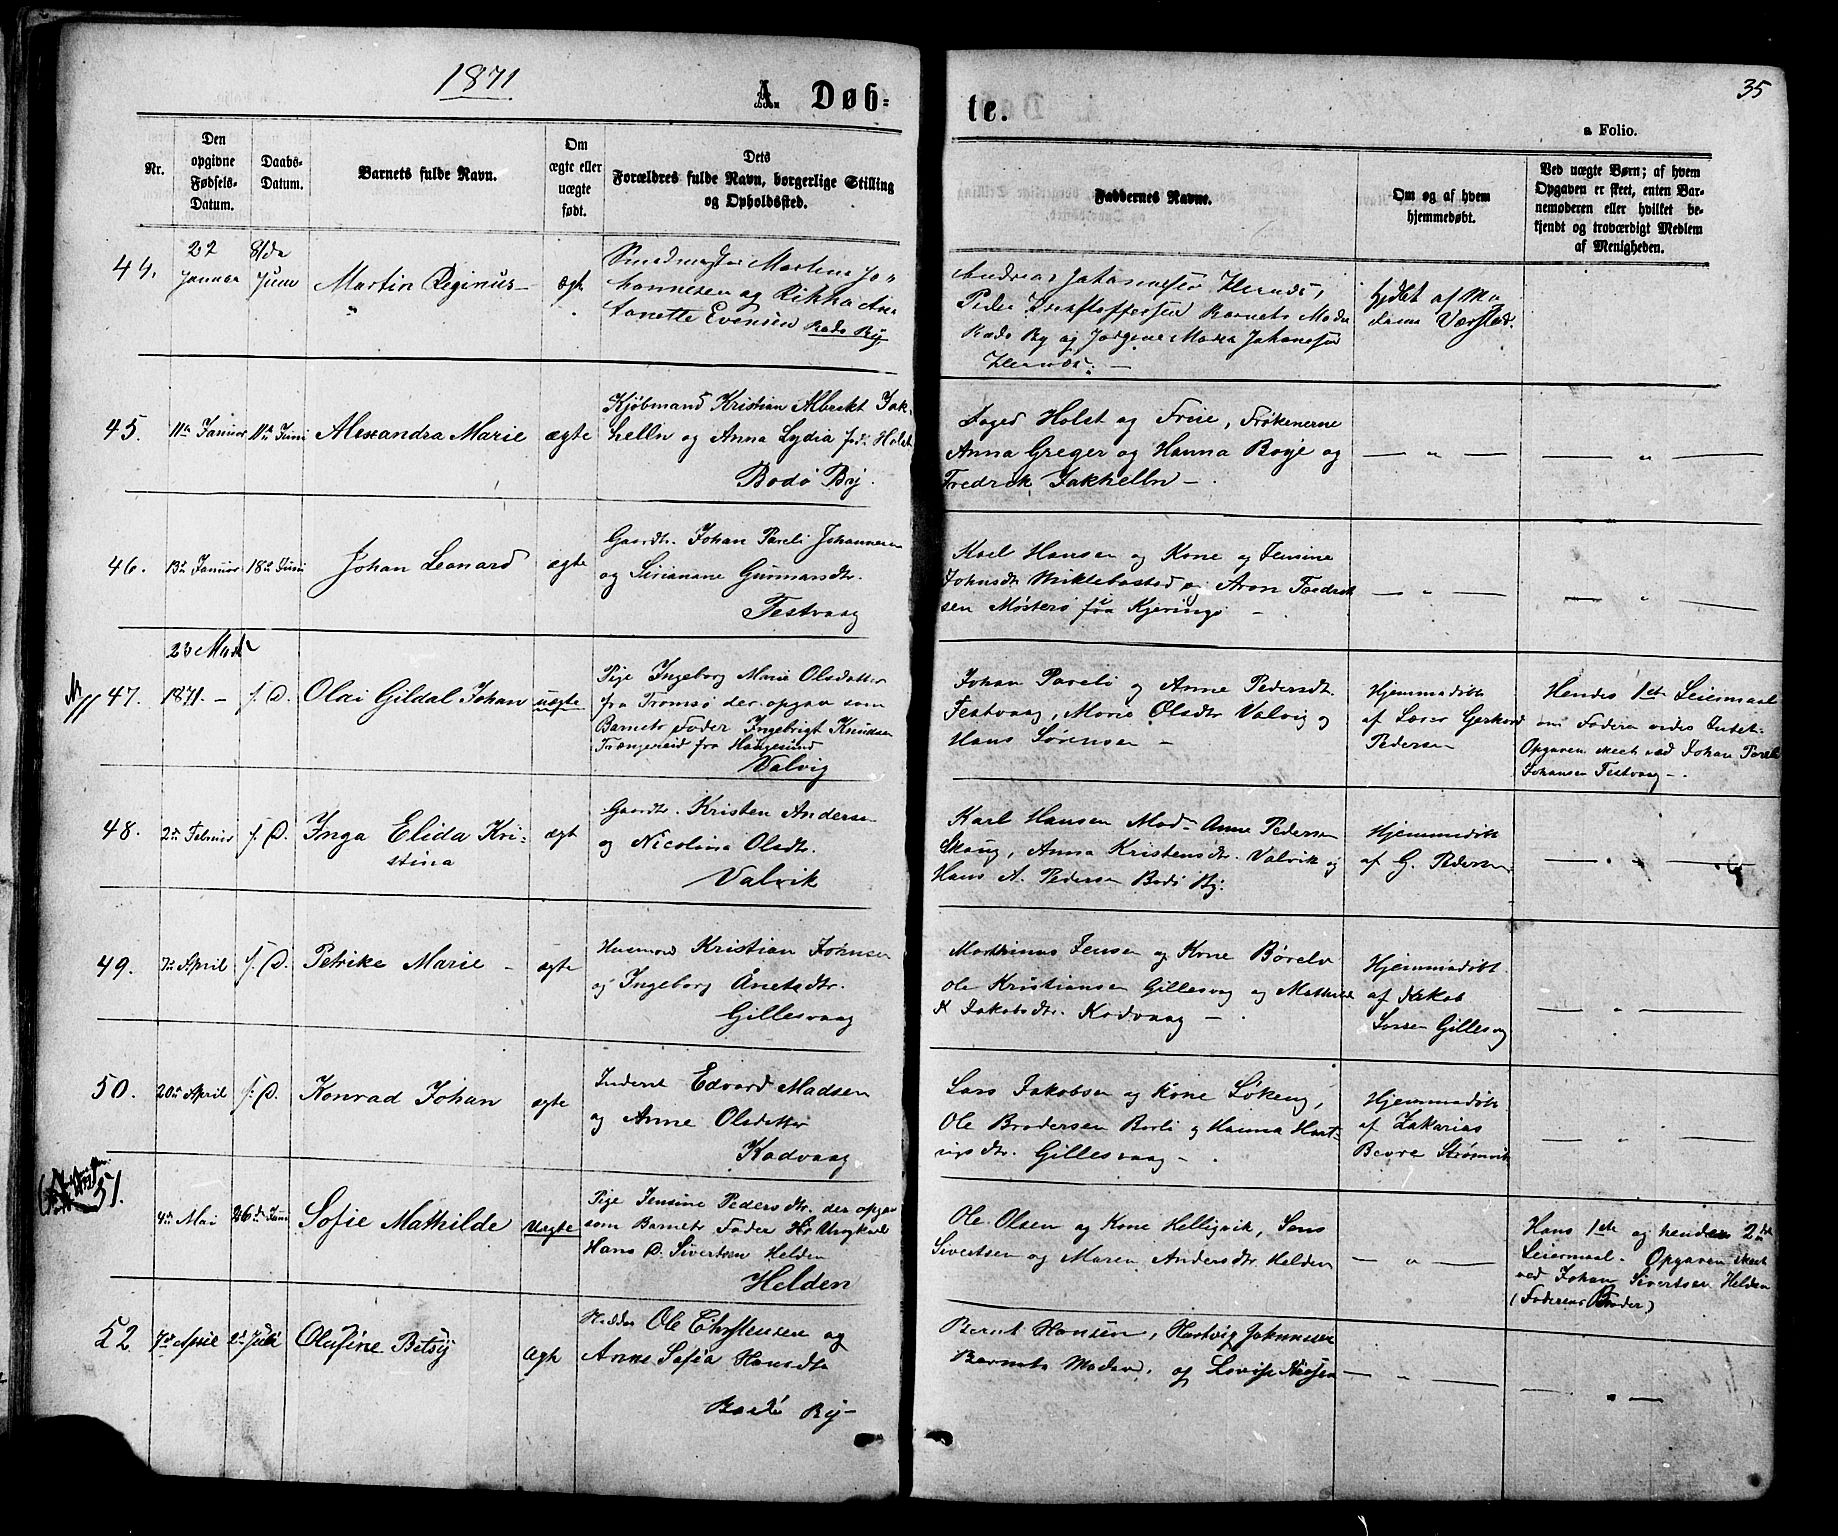 1871
A. Døb-
te.
35
a Folio.
Nr.
Den
opgivne
Fødsels-
Datum.
Daabs-
Datum.
Barnets fulde Navn.
Om
ægte eller
uægte
født.
Dets
Forældres fulde Navn, borgerlige Stilling
og Opholdssted.
Faddernes Navne.
Om og af hvem
hjemmedøbt.
Ved uægte Børn; af hvem
Opgaven er skeet, enten Bar-
nemoderen eller hvilket be-
kjendt og troværdigt Medlem
af Menigheden.
44.
22
Januar
8/de
Juni
Martin Reginus
ægte
Martinus Jo-
hannesen og Rikka An
tonette Evensen Bodø By
Andreas Johannesen
Peder Kristoffersen Barnets Moder
Bodø By og Jørgine Maria Johanesen
Hjdbt af Ma
dame Værstad.
45.
11te Januar
11te Juni
Alexandra Marie
ægte
Kjøbmand Kristian Albrekt Jak-
helln og Anna Lydia fød: Holst
Bodø By.
Foged Holst og Frue, Frøkenerne
Anna Greger og Hanna Boye og
Fredrik Jakhelln —
— " —
— " —
46.
13de Januar
18de Juni
Johan Leonard
ægte
Gaardr. Johan Pareli Johannesen
og Sirianane Gunnarsdtr.
Festvaag
Karl Hansen og Kone og Jensine
Johnsdtr Miklebostad og Aron Fredrik
sen Mosterø fra Kjeringø —
— " —
— " —
47.
23 Marts
1871. —
s. D.
Olai Gildal Johan
uægte
Pige Ingeborg Marie Olsdatter
fra Tromsø der opgav som
Barnets Fader Ingebrigt Knudsen
Trængereid fra Haugesund
Valvig
Johan Pareli og Anne Pedersdtr.
Festvaag, Marie Olsdtr Valvig og
Hans Sørensen —
Hjemmedøbt
af Lærer Gerhard
Pedersen
Hendes 1ste Leiermaal
om Faderen vides Intet.
Opgaven skeet ved Johan Pareli
Johansen Festvaag —.
48.
2den Februar
s. D.
Inga Elida Kri-
stina
ægt
Gaardr. Kristen Andersen
og Nicolina Olsdtr.
Valvik
Karl Hansen Mad. Anne Pedersen
Skaug, Anna Kristensdtr. Valvik og
Hans A. Pedersen Bodø By.
Hjemmedøbt
af G. Pedersen
— " —
49.
7de April
s. D.
Petrike Marie —
ægte
Huusmand Kristian Johnsen
og Ingeborg Anetsdtr.
Gillesvaag
Marthinus Jensen og Kone Børelv
Ole Kristiansen Gillesvaag og Mathilde
K Jakobsdtr. Kodvaag —
Hjemmedøbt
af Jakob
Gillesvag
— " —
50.
20de April
s. D.
Konrad Johan
ægte
Inderst Edvard Madsen
og Anne Olsdatter
Kodvaag
Lars Jakobsen og Kone Løkeng,
Ole Brodersen Børli og Hanna Hart-
vigsdtr. Gillesvaag —
Hjemmedøbt
af Zakarias
Bevre Strømvik
— " —
51.
4de Mai
26de Juni
Sofie Mathilde
Uægte
Pige Jensine Pedersdtr. der opgav
som Barnets Fader
Hans D. Sivertsen Helden
Helden
Ole Olsen og Kone Helligvik, Lars
Sivertsen og Maren Andersdtr. Helden
— " —
Hans 1ste og hendes 2det
Leiermaal. Opgaven skeet
ved Johan Sivertsen Helden
(Faderens Broder)
52
7de April
2de Juli
Olufine Betsy
ægte
Ole Christensen og
Anne Sofia Hansdtr
Bodø By —
Bernt Hansen, Hartvig Johnsen
Barnets Moder, og Lovise Nielsen
— " —
— " —